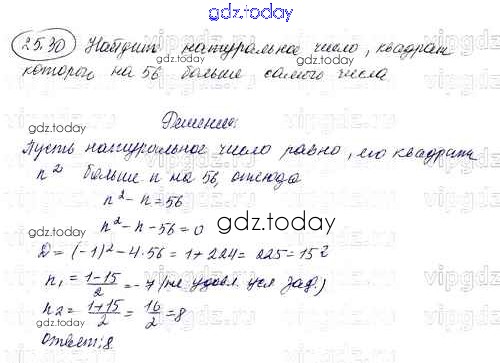 gdz.today
25.30 Найдите натуральное число, квадрат
которого на 56 больше самого числа
gdz.today
Решение.
Пусть натуральное число равно, его квадрат
n² больше n на 56, откуда
n² - n = 56
n² - n - 56 = 0
gdz.today
D = (-1)² - 4·56 = 1 + 224 = 225 = 15²
n₁ = 1-15/2 = -7 (не удовл. усл. зад.)
n₂ = 1+15/2 = 16/2 = 8
gdz.today
Ответ: 8